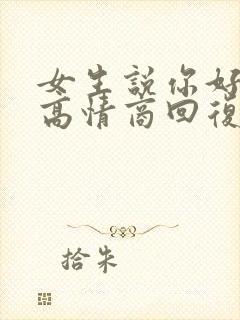 女生說你好
高情商回復
拾朱